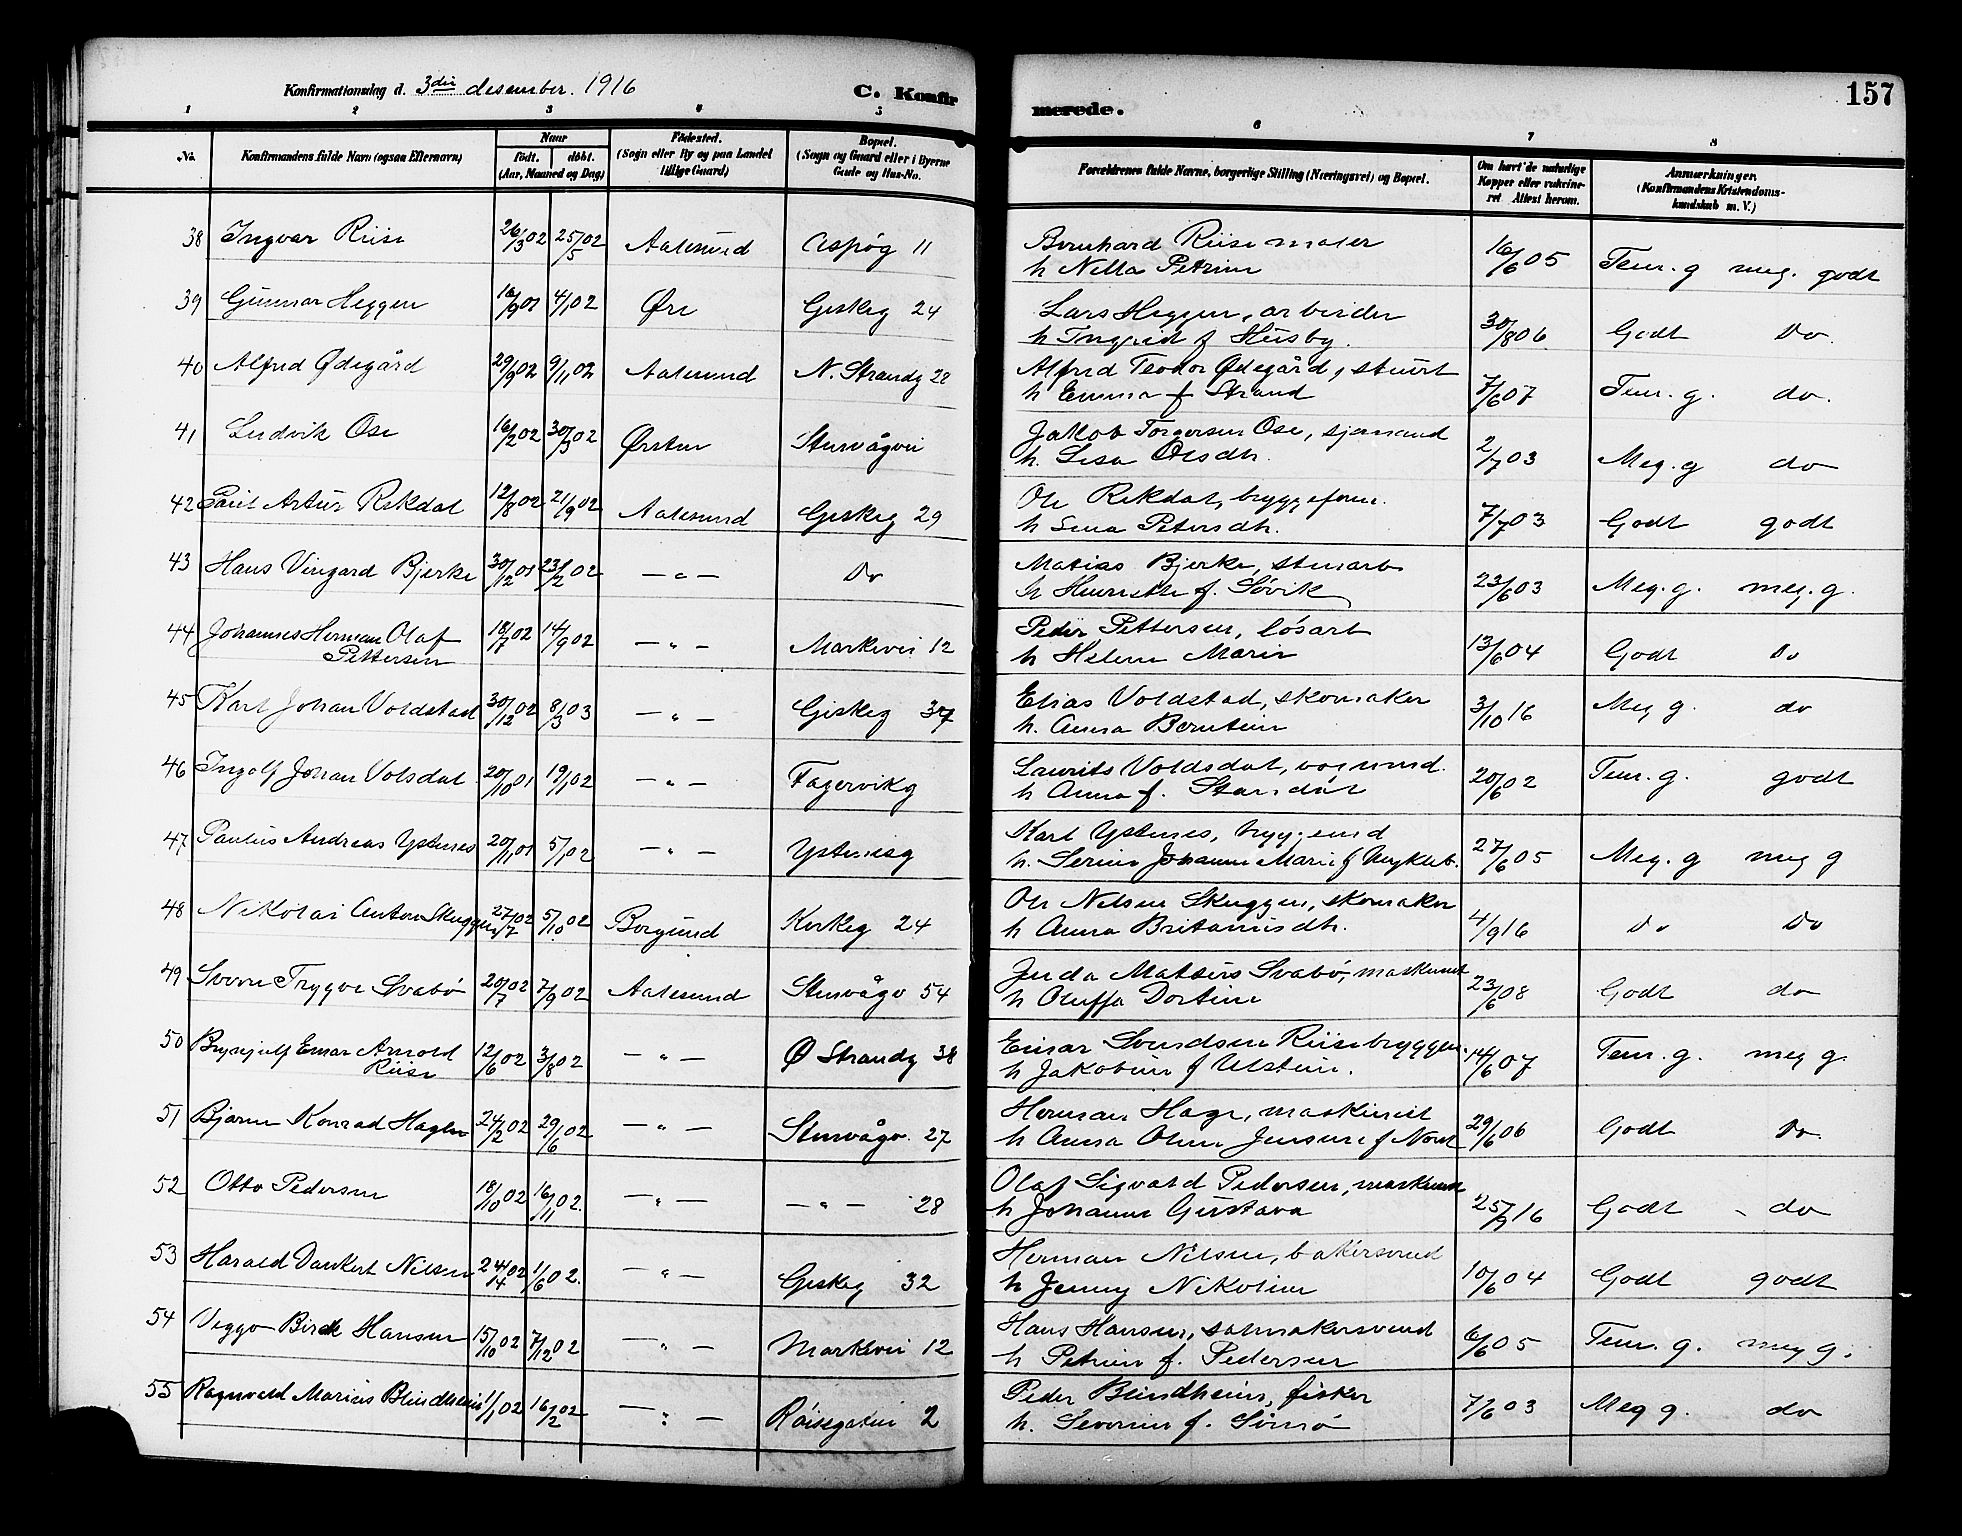 Konfirmationsdag d. 3die desember. 1916
C. Konfir
merede.
157
1 2 3 4 5 6 7 8
No.
Konfirmandens fulde Navn (ogsaa Efternavn)
Naar
födt. döbt.
(Aar, Maaned og Dag)
Födested.
(Sogn eller By og paa Landet
tillige Gaard)
Bopæl.
(Sogn og Gaard eller i Byerne
Gade og Hus-No.
Forældrenes fulde Navne, borgerlige Stilling (Næringsvei) og Bopæl.
Om havt de naturlige
Kopper eller vakcine-
ret Attest herom.
Anmærkninger.
(Konfirmandens Kristendoms-
kundskab m. V.)
38 Ingvar Riise 26/3 02 25/5 02 Aalesund Aspøg 11 Bernhard Riise maler 16/6 05 Tem. g meg. godt
h Nella Petrine
39 Gunnar Heggen 16/9 01 4/1 02 Øre Geskeg 24 Lars Heggen, arbeider 30/8 06 Godt Do.
h Ingrid f Husby.
40 Alfred Ødegård 29/9 02 9/11 02 Aalesund N. Strandg 28 Alfred Teodor Ødegård, stuert 7/6 07 Tem. g. do.
h Emma f Strand
41 Ludvik Ose 16/2 02 30/3 02 Ørsten Stenvågvei Jakob Torgersen Ose, sjømand 2/7 03 Meg. g do
h. Lesa Olsdtr.
42 Paul Artur Rekdal 12/8 02 21/9 02 Aalesund Geskeg 29 Ole Rekdal, bryggeform. 7/7 03 Godt godt
h Lena Petersdtr.
43 Hans Vingard Bjerke 30/12 01 23/2 02 — " — Do Matias Bjerke, stenarb 23/6 03 Meg. g. meg. g.
h Henrikke f. Søvik
44 Johannes Herman Olaf 18/7 02 14/9 02 — " — Markevei 12 Peder Pettersen, løsarb 13/6 04 Godt Do
Pettersen h Helene Marie
45 Karl Johan Voldstad 30/12 02 8/3 03 — " — Giskeg 37 Elias Voldstad, skomaker 3/10 16 Meg g. do
h. Anna Berntine
46 Ingolf Johan Volsdal 20/10 01 19/1 02 — " — Fagervikg Laurits Voldsdal, vognmd. 20/6 02 Tem. g. godt
h Anna f.
47 Paulus Andreas Ystenes 20/11 01 5/1 02 — " — Ystenesg Karl Ystenes, byggemd 27/6 05 Meg. g meg g
h. Serine Johanne Marie f Nykleb.
48 Nikolai Anton Skuggen 27/7 02 5/10 02 Borgund Kirkeg 24 Ole Nilsen Skuggen, skomaker 4/9 16 Do Do
h Anna Britanusdtr.
49 Sverre Trygve Svabø 20/7 02 7/9 02 Aalesund Stenvågv 54 Juda Mateus Svabø, maskinist 23/6 08 Godt do
h Oluffa Dortine
50 Brynjulf Einar Arnold 12/6 02 3/8 02 — " — Ø Strandg 38 Einar Svendsen Riise 14/6 07 Tem. g. meg g.
Riise h Jakobine f Ulstein.
51 Bjarne Konrad Hagen 24/2 02 29/6 02 — " — Stenvågv. 27 Herman Hage, maskinist 29/6 06 Godt Do.
h Anna Oline Jensine f
52 Otto Pedersen 18/10 02 16/11 02. — " — — " — 28 Olaf Sigvald Pedersen, maskinist 25/9 16 Godt - do
h Johanne Gustava
53 Harald Dankert Nilsen 24/4 02 1/6 02. — " — Geskeg 32 Herman Nilsen, bakersvend 10/6 04 Godt godt
h Jenny Nikoline
54 Viggo Birck Hansen 15/10 02 7/12 02 — " — Markevei 12 Hans Hansen, salmakersvend 6/6 05 Tem. g. meg g.
h Petrine f. Pedersen
55 Ragnvald Marius Blindheim 1/1 02 16/2 02 — " — Røisegaten 2 Peder Blindheim, fisker 7/6 03 Meg g. do
h. Severine f.